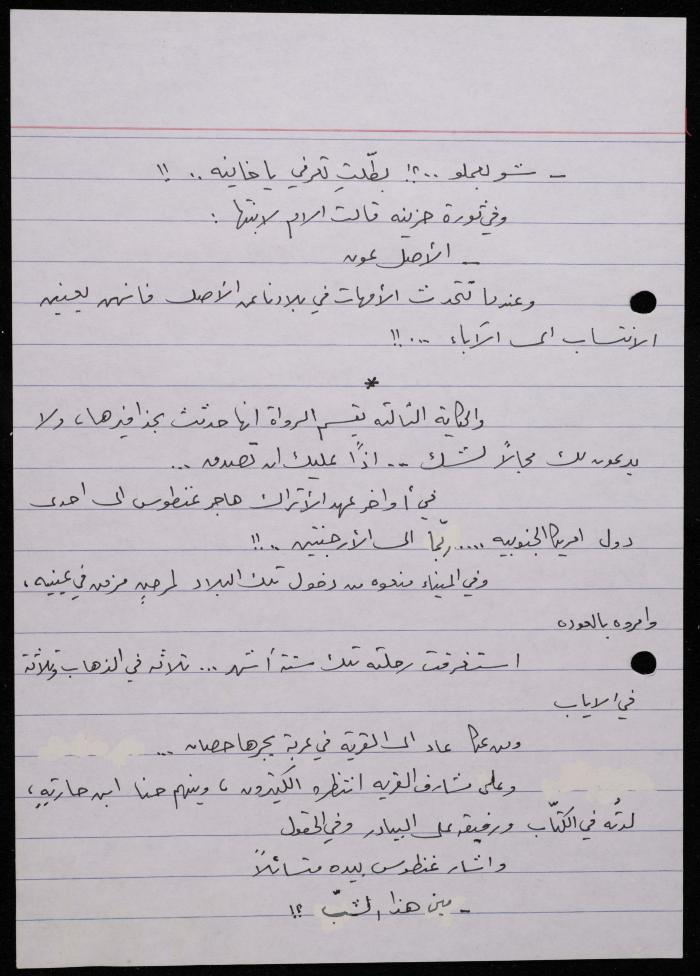 - شو بعملو ..؟! بطّلتِ تعرفي يا خاينه .. !!
وفي ثورة حزينه قالت الام لابنتها :
- الأصل عون
وعندما تتحدث الأمهات في بلادنا عن الأصل فانهن يعنين
الانتساب الى الآباء ...!!
*
والحكاية الثالثه يقسم الرواة انها حدثت بحذافيرها، ولا
يدعون لك مجالاً لشك .. اذاً عليك ان تصدق ...
في أواخر عهد الأتراك هاجر غنطوس الى احدى
دول امريكا الجنوبيه .... ربّما الى الأرجنتين ..!!
وفي الميناء منعوه من دخول تلك البلاد لمرضٍ مزمن في عينيه،
وامروه بالعوده
استغرقت رحلته تلك ستة أشهر ... ثلاثه في الذهاب وثلاثة
في الاياب
ومن عكا عاد الى القرية في عربة يجرها حصان ...
وعلى مشارف القريه انتظره الكثيرون، وبينهم حنا ابن حارتهِ،
لدتُه في الكتّاب ورفيقه على البيادر وفي الحقول
واشار غنطوس بيده متسائلاً
- مين هذا الشبّ ؟!